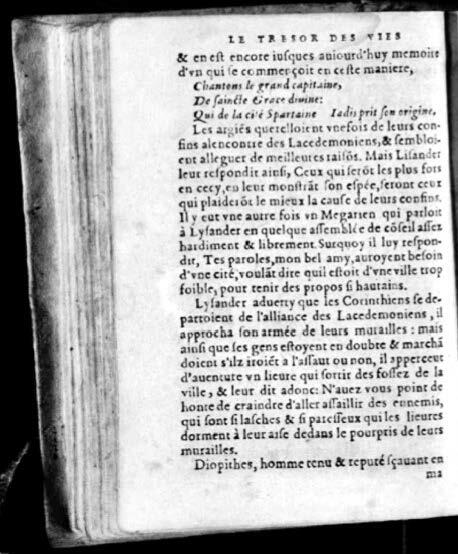 LE TRESOR DES VIES
& en est encore iusques auiourd'huy memoire
d'vn qui se commerçoit en ceste maniere,
Chantons le grand capitaine,
De saincte Grace diuine:
Qui de la cité Spartaine Iadis prit son origine.
Les argiēs querelloient vnefois de leurs con-
fins alencontre des Lacedemoniens, & sembloi-
ent alleguer de meilleures raisōs. Mais Lisander
leur respondit ainsi, Ceux qui serōt les plus forts
en cecy, en leur monstrāt son espée, seront ceux
qui plaiderōt le mieux la cause de leurs confins.
Il y eut vne autre fois vn Megarien qui parloit
à Lysander en quelque assemblée de cōseil assez
hardiment & librement. Surquoy il luy respon-
dit, Tes paroles, mon bel amy, auroyent besoin
d'vne cité, voulāt dire quil estoit d'vne ville trop
foible, pour tenir des propos si hautains.
Lysander aduerty que les Corinthiens se de-
partoient de l'alliance des Lacedemoniens, il
approcha son armée de leurs murailles : mais
ainsi que ses gens estoyent en doubte & marchā
doient s'ilz iroiēt a l'assaut ou non, il apperceut
d'auenture vn lieure qui sortit des fossez de la
ville, & leur dit adonc: N'auez vous point de
honte de craindre d'aller assaillir des ennemis,
qui sont si lasches & si paresseux qui les lieures
dorment à leur aise dedans le pourpris de leurs
murailles.
Diopithes, homme tenu & reputé sçauant en
ma